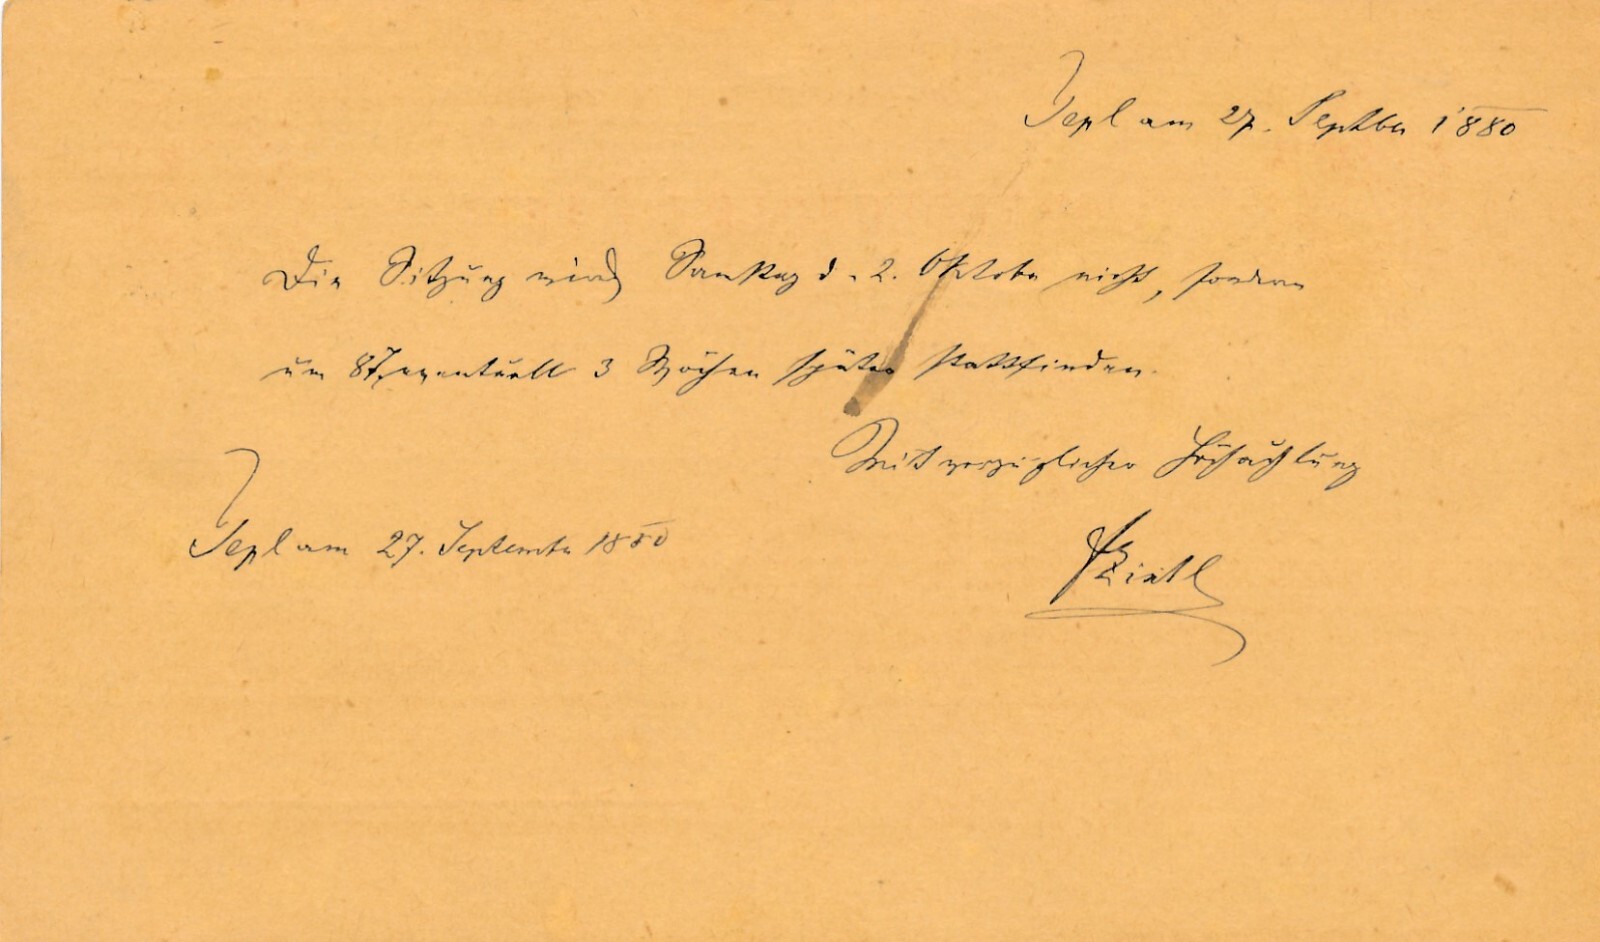 Tepl am 27. Septber 1880
Die Sitzung wird Samstag d. 2. Oktober nicht, sondern
um 8 T, eventuell 3 Wochen später stattfinden.
Mit vorzüglicher Hochachtung
Tepl am 27. September 1880